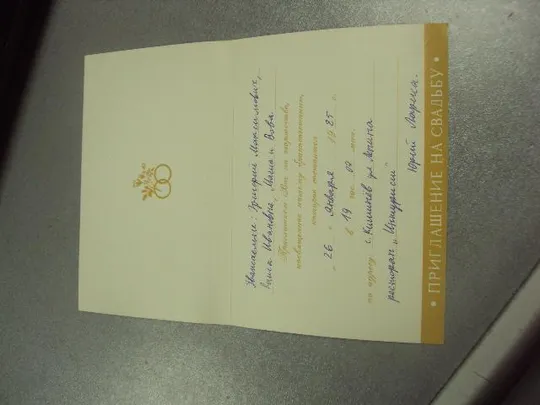 • ПРИГЛАШЕНИЕ НА СВАДЬБУ •
Уважаемые: Григорий Максимович,
Раиса Ивановна, Маша и Вова
Приглашаем Вас на торжество,
посвященное нашему бракосочетанию,
которое состоится
" 26 " января 1985 г.
в 19 час. 00 мин.
по адресу: г. Кишинёв ул. Ленина
ресторан „Интурист"
Юрий Лариса.